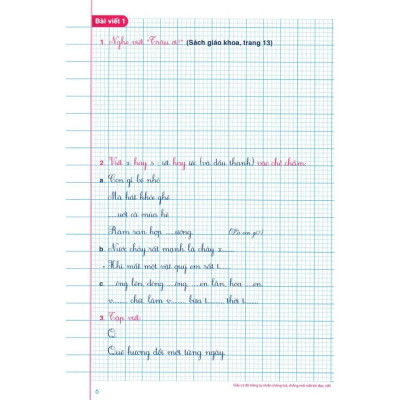 Bài viết 1
1 Nghe viết: Trâu ơi! (Sách giáo khoa, trang 13)
2 Viết x hay s ; ưt hay ưc (và dấu thanh) vào chỗ chấm:
a Con gì bé nhỏ
Mà hát khỏe ghê
...uốt cả mùa hè
Râm ran hợp ...ướng. (Là con gì?)
b - Nước chảy rất mạnh là chảy x......
- Khi mất một vật quý, em rất t......
c ...ông lên, dòng ...ông, ...en lẫn, hoa ...en
v...... chơi, làm v......, bữa t......, thời t......
3 Tập viết:
Q
Quê hương đổi mới từng ngày.
6